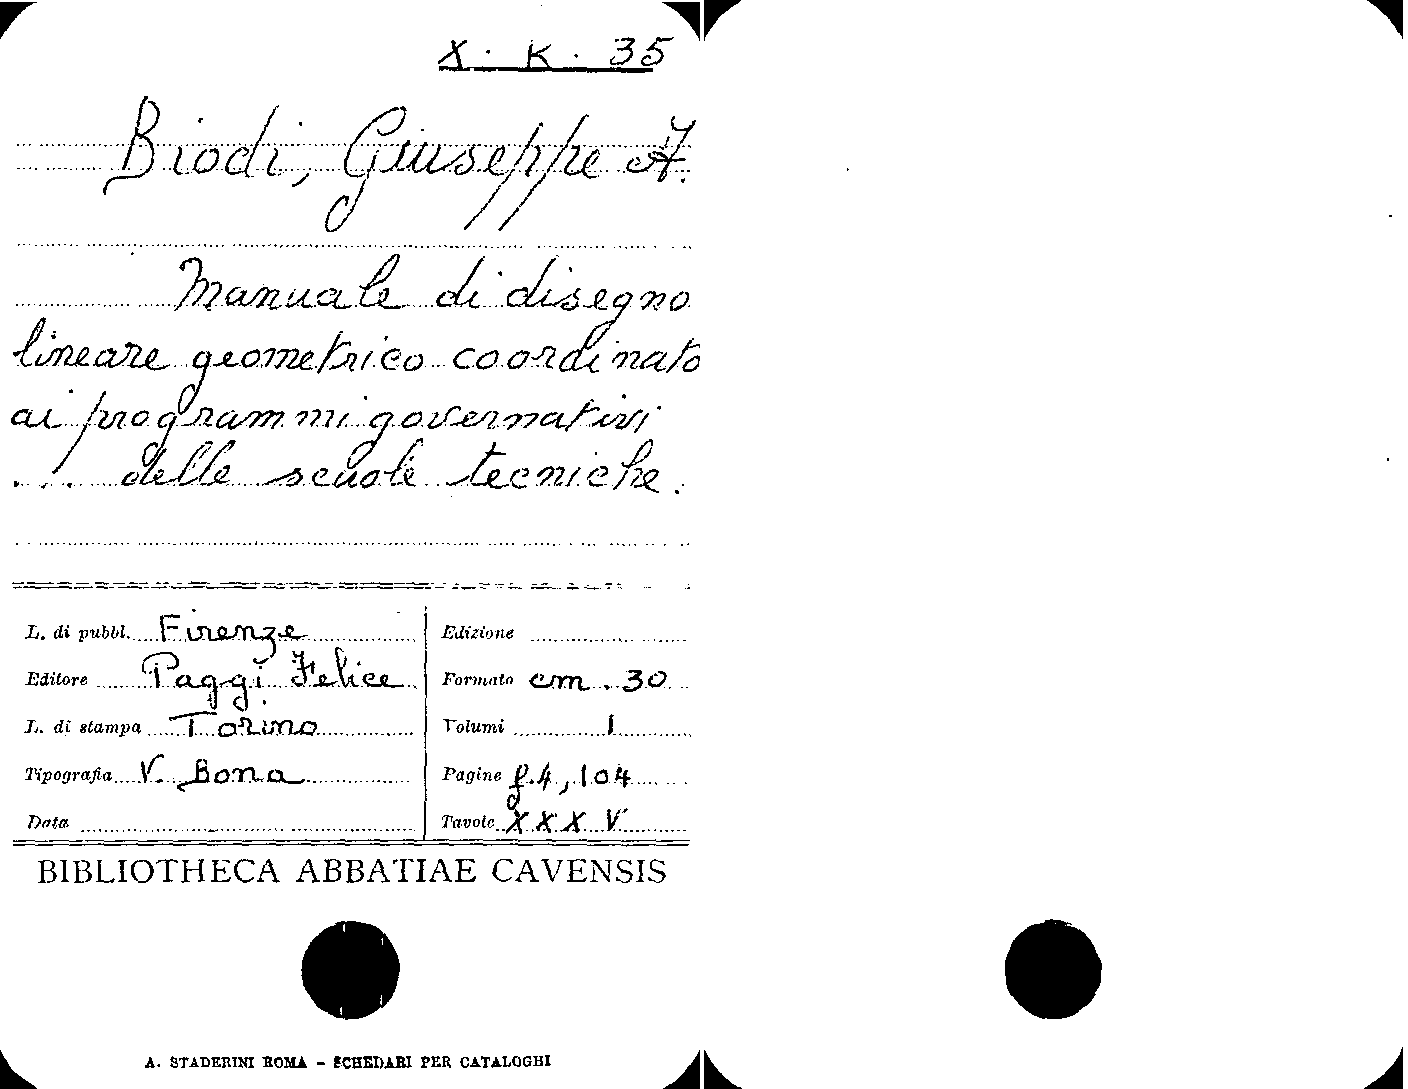 X. K. 35
Biodi, Giuseppe A.
Manuale di disegno
lineare geometrico coordinato
ai programmi governativi
... delle scuole tecniche.
L. di pubbl. Firenze
Editore Paggi Felice
L. di stampa Torino
Tipografia V. Bona
Data
Edizione
Formato cm. 30
Volumi 1
Pagine p.4, 104
Tavole XXXV
BIBLIOTHECA ABBATIAE CAVENSIS
A. STADERINI ROMA - SCHEDARI PER CATALOGHI